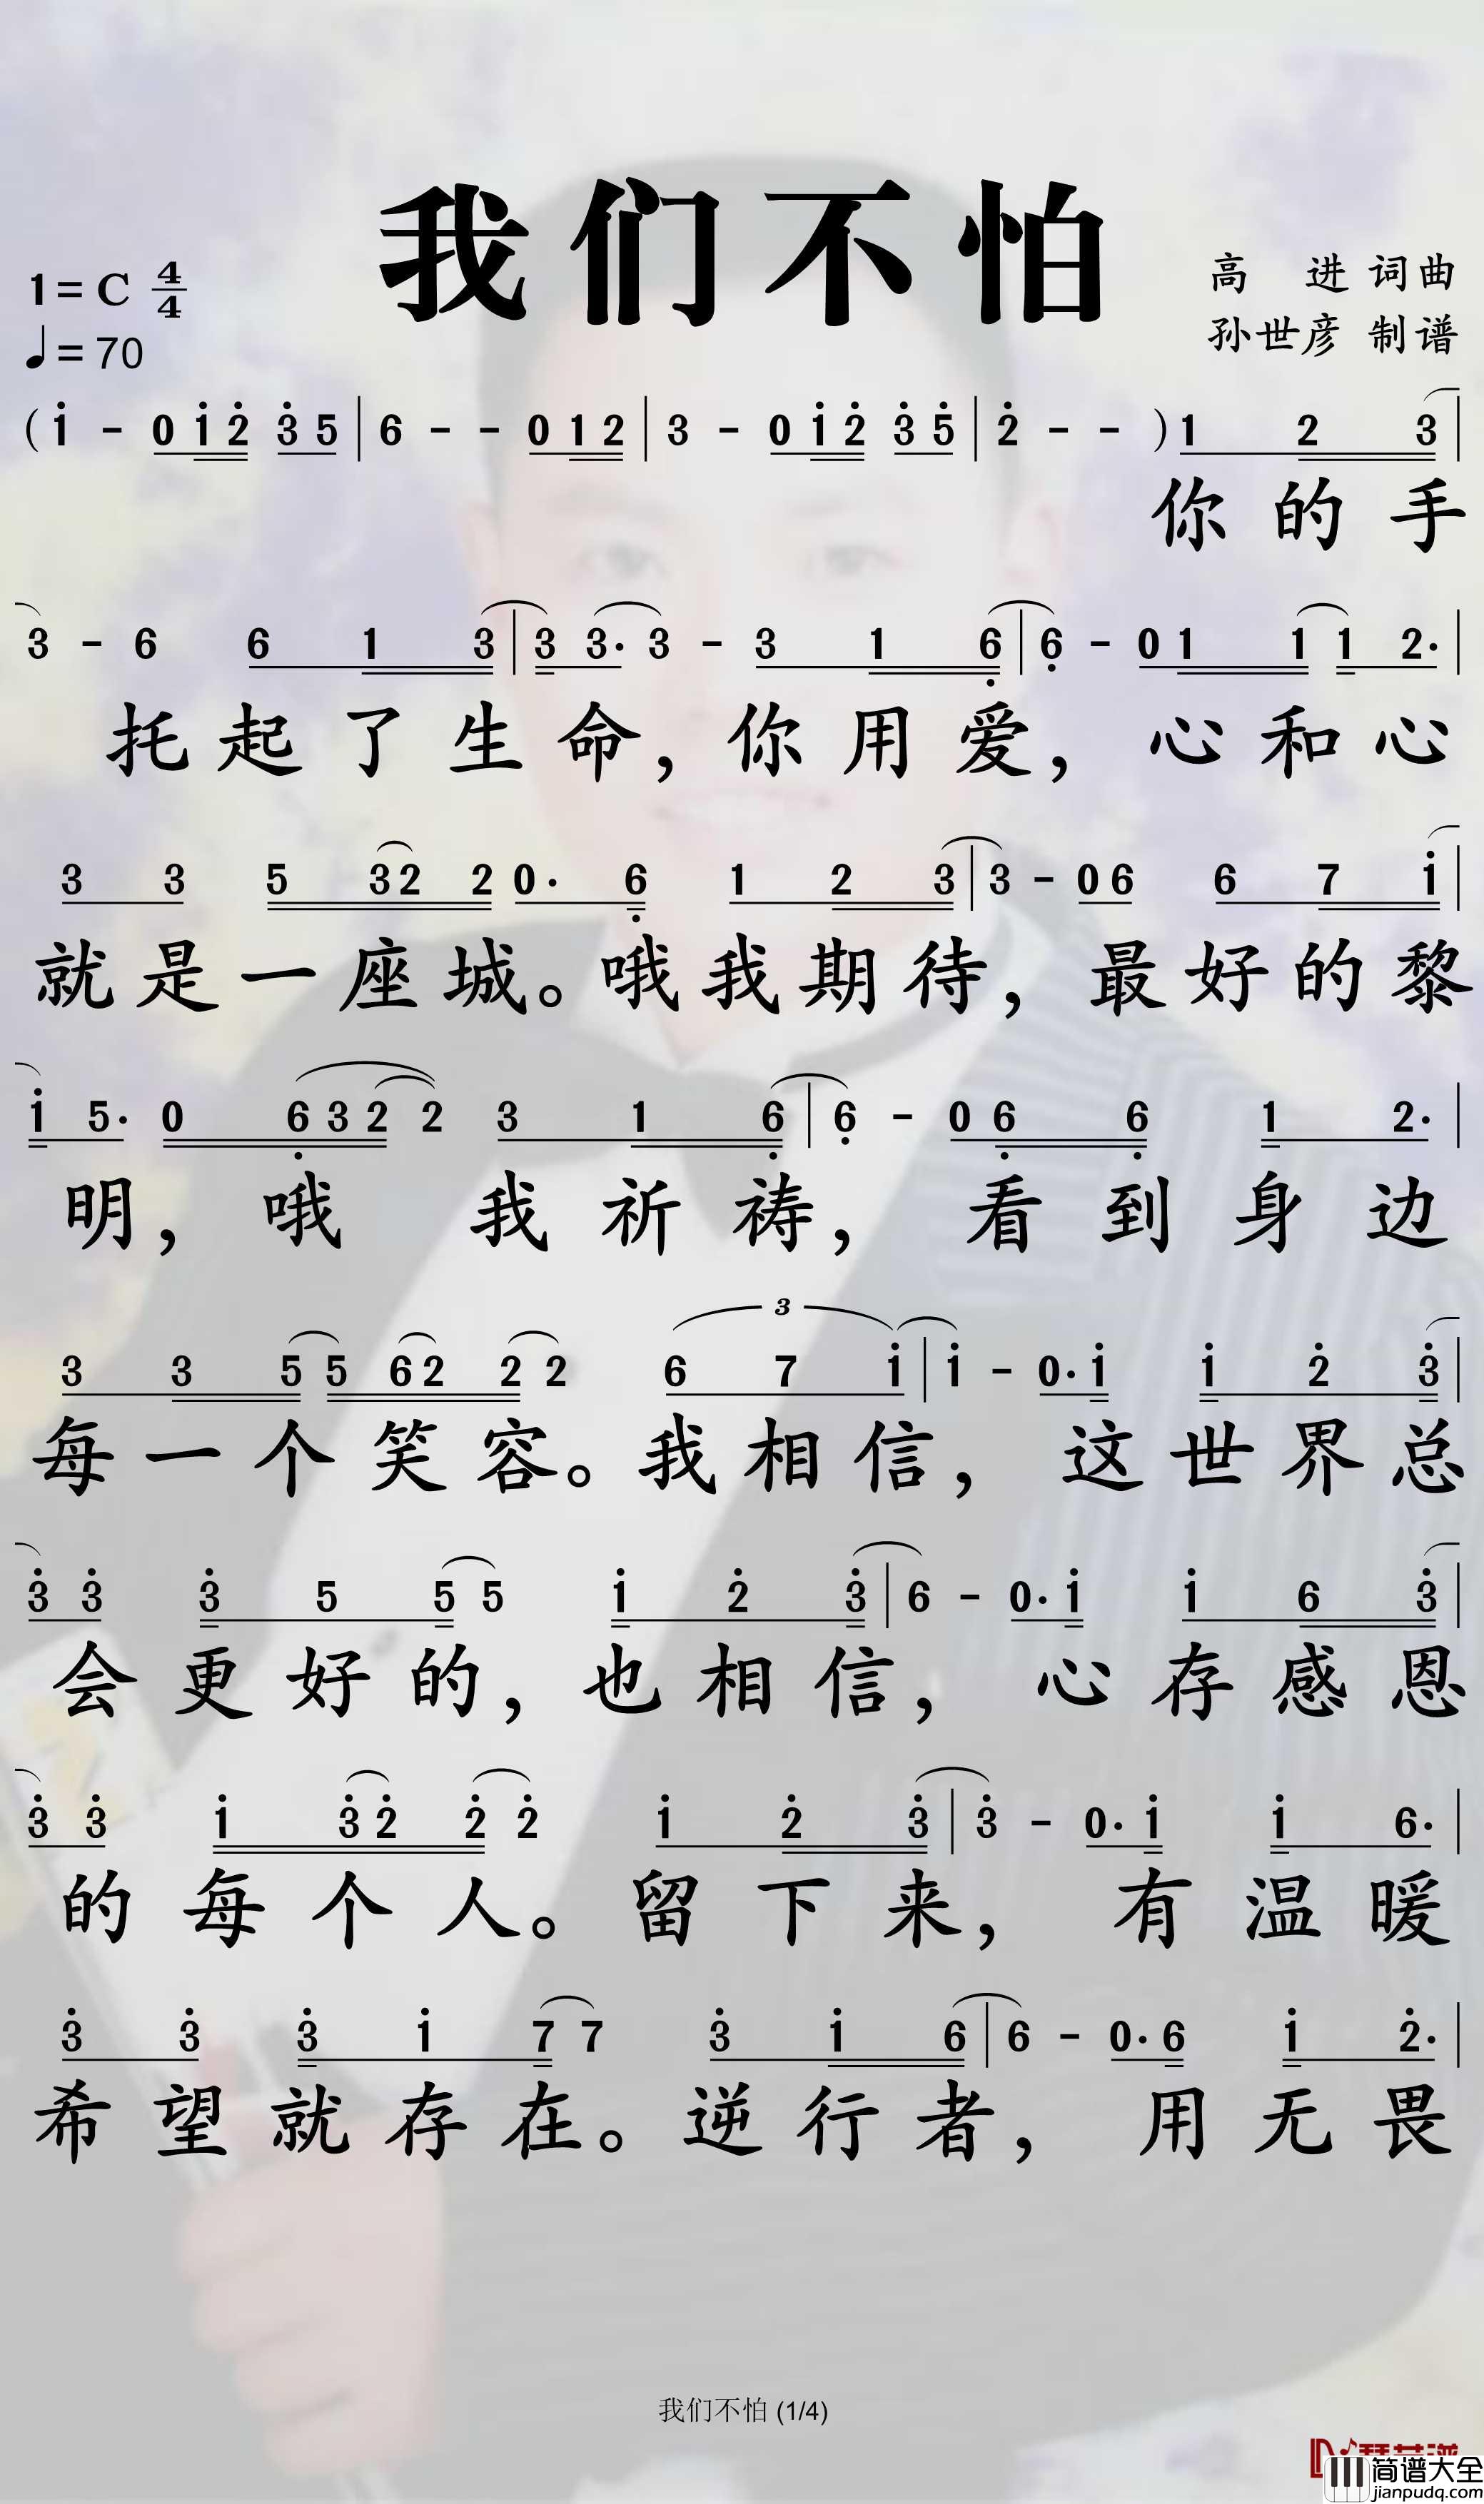 我们不怕
1=C 4/4
高 进 词曲
♩=70
孙世彦 制谱
( i - 0 i 2 3 5 | 6 - - 0 1 2 | 3 - 0 i 2 3 5 | 2 - - ) 1 2 3 |
你 的 手
3 - 6 6 1 3 | 3 3· 3 - 3 1 6 | 6 - 0 1 1 1 2· |
托 起 了 生 命, 你 用 爱, 心 和 心
3 3 5 3 2 2 0· 6 1 2 3 | 3 - 0 6 6 7 i |
就 是 一 座 城。哦 我 期 待, 最 好 的 黎
i 5· 0 6 3 2 2 3 1 6 | 6 - 0 6 6 1 2· |
明, 哦 我 祈 祷, 看 到 身 边
3
3 3 5 5 6 2 2 2 6 7 i | i - 0· i i 2 3 |
每 一 个 笑 容。我 相 信, 这 世 界 总
3 3 3 5 5 5 i 2 3 | 6 - 0· i i 6 3 |
会 更 好 的, 也 相 信, 心 存 感 恩
3 3 i 3 2 2 2 i 2 3 | 3 - 0· i i 6· |
的 每 个 人。留 下 来, 有 温 暖
3 3 3 i 7 7 3 i 6 | 6 - 0· 6 i 2· |
希 望 就 存 在。逆 行 者, 用 无 畏
我们不怕 (1/4)
简谱大全
jianpudq.com